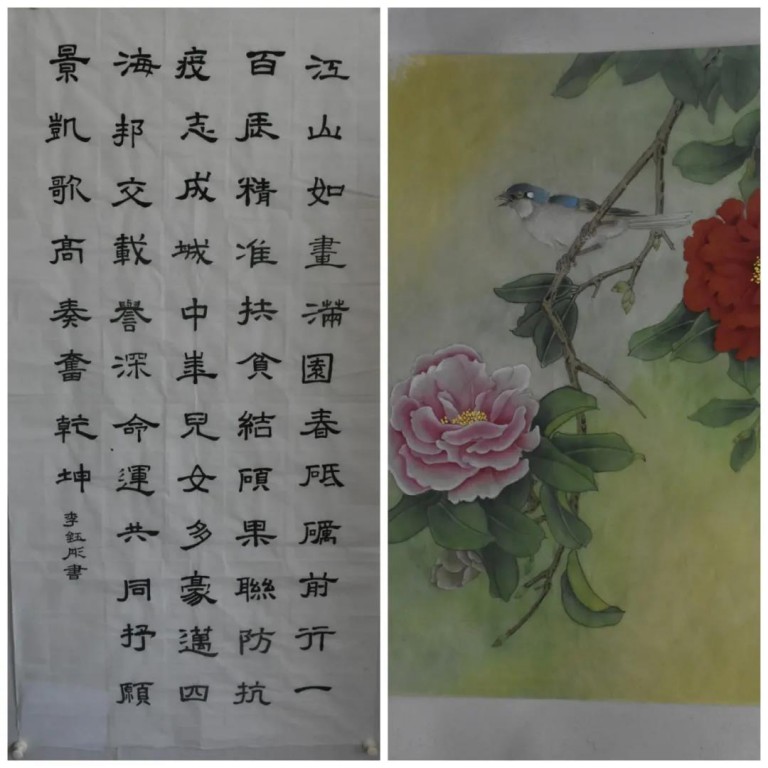 江山如畫滿園春砥礪前行一
百辰精准扶貧結碩果聯防抗
疫志成城中華兒女多豪邁四
海邦交載譽深命運共同抒願
景凱歌高奏奮乾坤
李鈺彤書